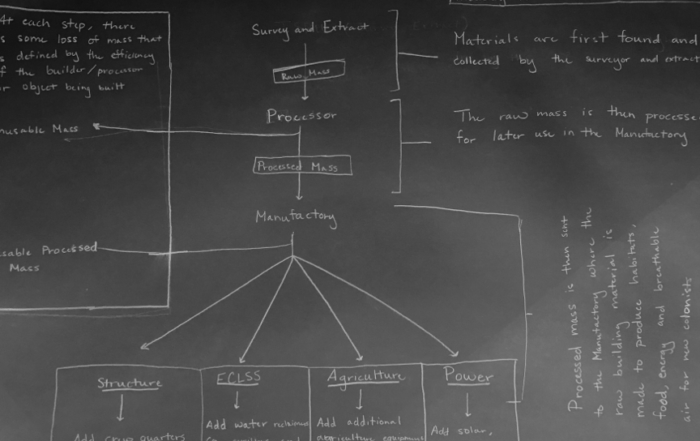 At each step, there
s some loss of mass that
s defined by the efficiency
f the builder/processor
or object being built
nusable Mass
sable Processed
Mass
Survey and Extract
Raw Mass
Processor
Processed Mass
Manufactory
Materials are first found and
collected by the surveyor and extract
The raw mass is then processe
for later use in the Manufactory
Processed mass is then sent
to the Manufactory where the
raw building material is
made to produce habitats,
food, energy and breathable
air for new colonists
Structure
Add crew quarters
ECLSS
Add water
Agriculture
Add additional
agriculture
Power
Add solar,